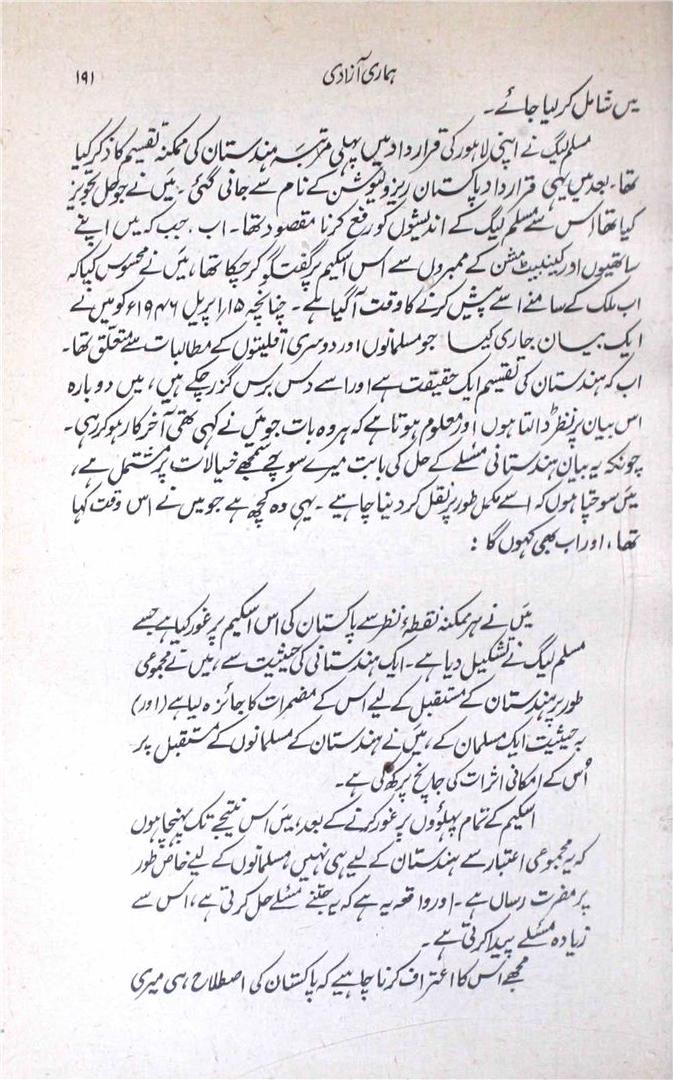 ہماری آزادی ۱۹۱
میں شامل کر لیا جائے۔
مسلم لیگ نے اپنی لاہور کی قرارداد میں پہلی مرتبہ ہندستان کی ممکنہ تقسیم کا ذکر کیا
تھا۔ بعد میں یہی قرارداد پاکستان ریزولیوشن کے نام سے جانی گئی۔ میَں نے جو حل تجویز
کیا تھا اِس سے مسلم لیگ کے اندیشوں کو رفع کرنا مقصود تھا۔ اب، جب کہ میں اپنے
ساتھیوں اور کیبنیٹ مشن کے ممبروں سے اس اسکیم پر گفتگو کر چکا تھا، میَں نے محسوس کیا کہ
اب ملک کے سامنے اسے پیش کرنے کا وقت آ گیا ہے۔ چنانچہ ۱۵؍اپریل ۱۹۴۶ء کو میں نے
ایک بیان جاری کیا جو مسلمانوں اور دوسری اقلیتوں کے مطالبات سے متعلق تھا۔
اب کہ ہندستان کی تقسیم ایک حقیقت ہے اور اسے دس برس گزر چکے ہیں، میں دوبارہ
اس بیان پر نظر ڈالتا ہوں اور معلوم ہوتا ہے کہ ہر وہ بات جو میَں نے کہی تھی آخر کار ہو کر رہی۔
چونکہ یہ بیان ہندستانی مسئلے کے حل کی بابت میرے سوچے سمجھے خیالات پر مشتمل ہے،
میَں سوچتا ہوں کہ اسے مکمل طور پر نقل کر دینا چاہیے۔ یہی وہ کچھ ہے جو میں نے اس وقت کہا
تھا، اور اب بھی کہوں گا :
میَں نے ہر ممکنہ نقطۂ نظر سے پاکستان کی اس اسکیم پر غور کیا ہے جسے
مسلم لیگ نے تشکیل دیا ہے۔ ایک ہندستانی کی حیثیت سے، میں نے مجموعی
طور پر ہندستان کے مستقبل کے لیے اس کے مضمرات کا جائزہ لیا ہے (اور)
بہ حیثیت ایک مسلمان کے، میَں نے ہندستان کے مسلمانوں کے مستقبل پر
اُس کے امکانی اثرات کی جانچ پرکھ کی ہے۔
اسکیم کے تمام پہلوؤں پر غور کرنے کے بعد، میَں اس نتیجے تک پہنچا ہوں
کہ یہ مجموعی اعتبار سے ہندستان کے لیے ہی نہیں مسلمانوں کے لیے خاص طور
پر مضرت رساں ہے۔ اور واقعہ یہ ہے کہ یہ جتنے مسئلے حل کرتی ہے، اس سے
زیادہ مسئلے پیدا کرتی ہے۔
مجھے اس کا اعتراف کرنا چاہیے کہ پاکستان کی اصطلاح ہی میری